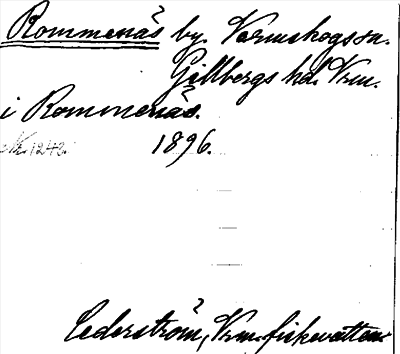 Rommenäs by. Värmskogs sn.
Gillbergs hd. Vrm.
i Rommenäs.
Nr. 1242. 1896.
Cederström, Vrm. fiskevatten